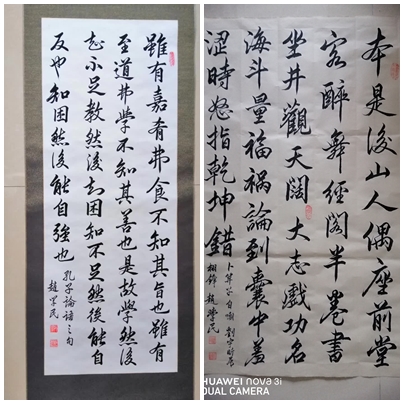 雖有嘉肴弗食不知其旨也雖有
至道弗學不知其善也是故學然後
知不足教然後知困知不足然後能自
反也知困然後能自強也
孔子論語之句
趙學民
本是後山人偶座前堂
客醉舞經閣半卷書
坐井觀天闊大志戲功名
海斗量福禍論到囊中羞
澀時怒指乾坤錯
卜算子自嘲
趙學民
HUAWEI nova 3i
DUAL CAMERA